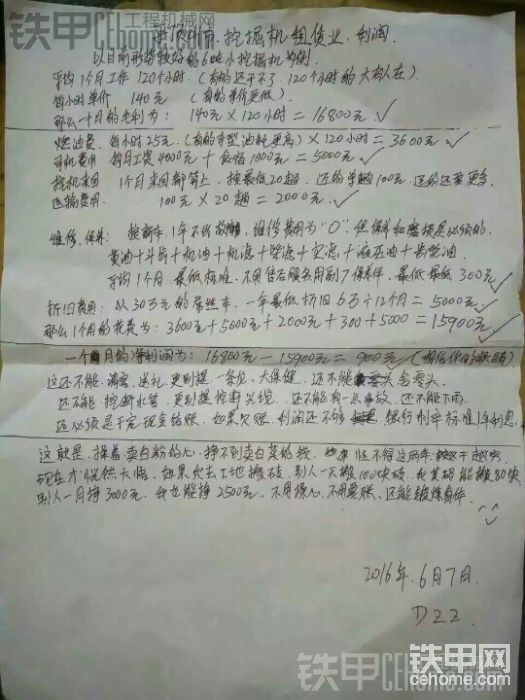 铁甲 工程机械网
CEhome.com
挖掘机租赁业、利润
以目前形势较好的6吨小挖掘机为例
平均1个月工作120个小时 (有的还干不了120个小时的大有人在)
每小时单价 140元 (有的单价更低)
那么一个月的毛利为: 140元×120小时=16800元 ✓
燃油费、每小时25元 (有的车型油耗更高) ×120小时=3600元 ✓
司机费用 每月工资4000元+食宿1000元=5000元 ✓
拖机来回 1个月来回都算上、按最低20趟、近的单趟100元、远的还要更多
运输费用 100元×20趟=2000元 ✓
维修、保养: 按新车、1年不出故障、维修费用为"0"、但保养和磨损是必须的
黄油+斗齿+机油+机滤+柴滤+空滤+液压油+齿轮油
平均1个月 最低标准、不用售后服务用副厂保养件、最低最低300元 ✓
折旧费用: 以30万元的 车、一年最低折旧6万÷12个月=5000元 ✓
那么1个月的花费为: 3600元+5000元+2000元+300+5000=15900元 ✓
一个月的净利润为: 16800元-15900元=900元 ✓
这还不能 请客、送礼、更别提一条龙、大保健、还不能 零头舍零头
还不能、挖断水管、更别提挖断光缆、还不能有一点事故、还不能下雨
还必须是干完现金结账、如果欠账、利润还不够 银行利率标准1年利息
这就是、操着卖白粉的心、挣不到卖白菜的钱、 怪不得这两年 越干越
现在才恍然大悟、如果 工地搬砖、别人一天搬100块砖、我其码能搬80块
别人一月挣3000元、我也能挣2500元、不用操心、不用要账、还能锻炼身体
2016年、6月7日
DZZ
铁甲 CEhome.com
铁甲网
cehome.com